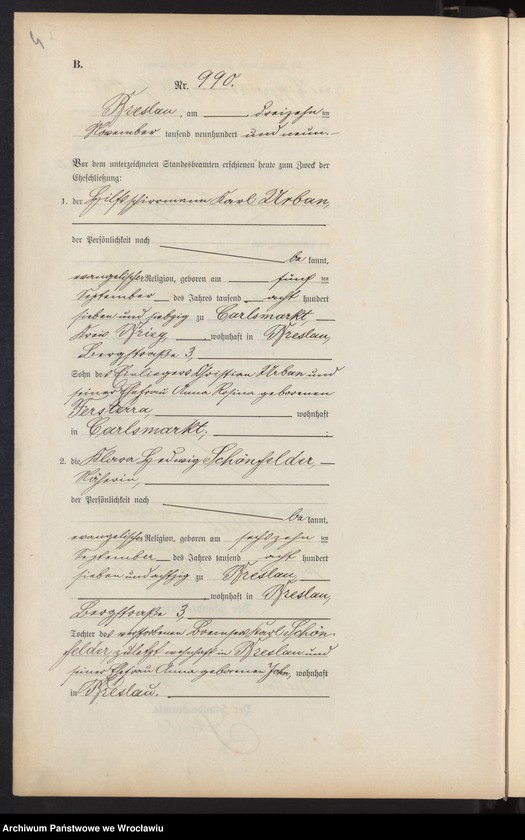 4
B.
Nr. 990.
Breslau, am dreizehn ten
November tausend neunhundert und neun.
Vor dem unterzeichneten Standesbeamten erschienen heute zum Zweck der
Eheschließung:
1. der Hilfsschirrmann Karl Urban,
der Persönlichkeit nach
be kannt,
evangelischer Religion, geboren am fünf ten
September des Jahres tausend acht hundert
sieben und siebzig zu Carlsmarkt,
Kreis Brieg, wohnhaft in Breslau,
Bergstraße 3,
Sohn des Einliegers Christian Urban und
seiner Ehefrau Anna Rosina geborenen
Fersterra, wohnhaft
in Carlsmarkt;
2. die Klara Hedwig Schönfelder,
Näherin,
der Persönlichkeit nach
be kannt,
evangelischer Religion, geboren am sechszehn ten
September des Jahres tausend acht hundert
sieben und achtzig zu Breslau,
, wohnhaft in Breslau,
Bergstraße 3,
Tochter des verstorbenen Karl Schön-
felder, zuletzt wohnhaft in Breslau und
seiner Ehefrau Anna geborenen John, wohnhaft
in Breslau.
Archiwum Państwowe we Wrocławiu